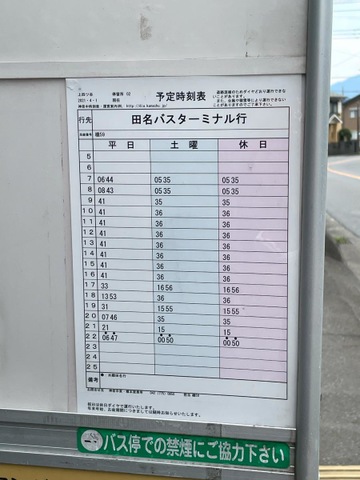 予定時刻表
行先 田名バスターミナル行
平日 土曜 休日
5
6
7 06 44 05 35 05 35
8 08 43 05 35 05 35
9 41 35 35
10 41 36 36
11 41 36 36
12 41 36 36
13 41 36 36
14 41 36 36
15 41 36 36
16 41 36 36
17 33 16 56 16 56
18 13 53 36 36
19 31 15 55 15 55
20 07 46 35 35
21 21 15 15
22 06 47 00 50 00 50
23
24
25
備考
バス停での禁煙にご協力下さい